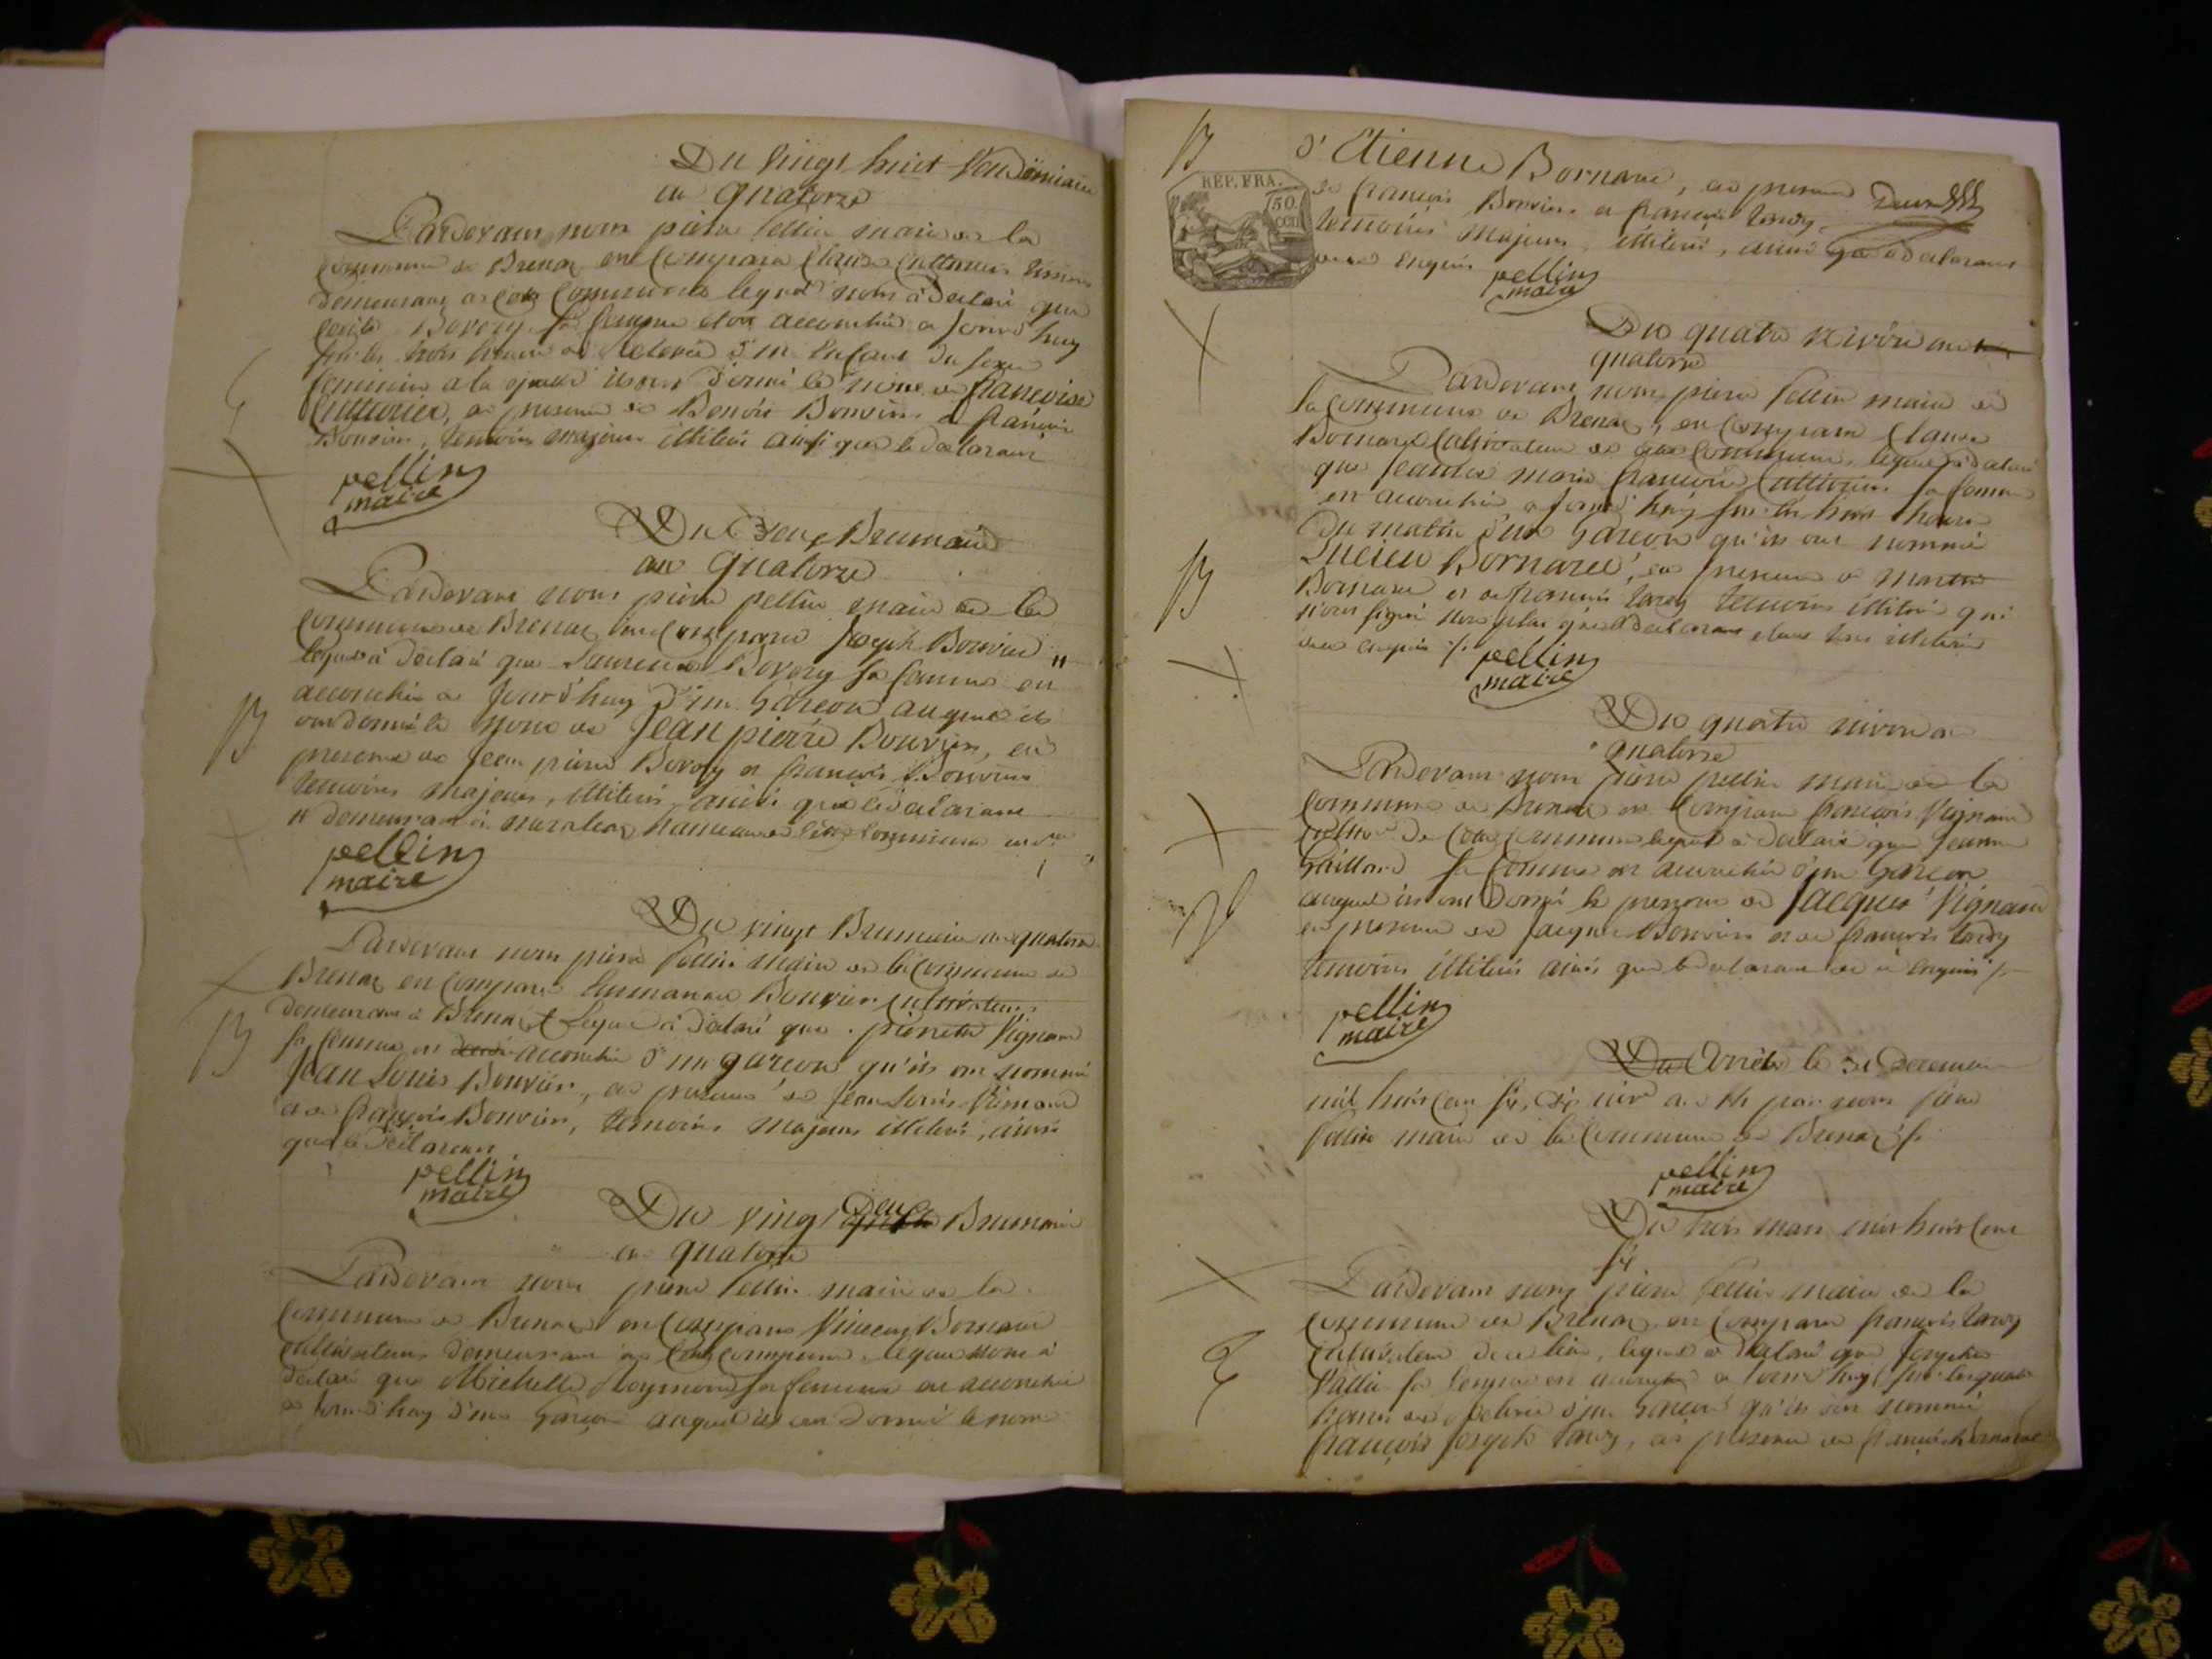 Du vingt huit Vendémiaire
an quatorze
Pardevant nous pierre Pellin maire de la
commune de Brenaz en Comparu Claude Cutturier
demeurant a cette commune lequel nous a declaré que
Borrey sa femme est accouchée a jourd'huy
sur les trois heures de relevée d'un enfant du sexe
feminin a la quelle ils ont donné le nom de francoise
Cutturier, en presence de Benoit Bonvin et francois
Bouvier, temoins majeurs illitérés ainsi que le declarant
pellin
maire
Du deux Brumaire
an quatorze
Pardevant nous pierre pellin maire de la
commune de Brenaz en Comparu Joseph Bouvier "
lequel a declaré que Laurence Borrey sa femme est
accouchée a jourd'huy d'un garcon auquel ils
ont donné le nom de Jean pierre Bouvier, en
presence de Jean pierre Borrey et francois Bouvier
temoins majeurs, illitérés ainsi que le declarant
" demeurant a hameau de cette commune
pellin
maire
Du vingt Brumaire an quatorze
Pardevant nous pierre Pellin maire de la commune de
Brenaz en Comparu Bouvier Cultivateur
demeurant a Brenaz lequel a declaré que pierrette Vignand
sa femme est accouchée d'un garcon qu'ils ont nommé
Jean Louis Bouvier, en presence de Jean Louis
et de francois Bouvier, temoins majeurs illitérés, ainsi
que le declarant
pellin
maire
Du vingt Deux Brumaire
an quatorze
Pardevant nous pierre Pellin maire de la
commune de Brenaz en Comparu Vincent Bornarel
cultivateur demeurant en cette commune, lequel nous a
declaré que Michelle Reymond sa femme est accouchée
a jourd'huy d'un garcon auquel ils ont donné le nom
d'Etienne Bornarel, en presence
de francois Bouvier et francois tardy
temoins majeurs, illitérés, ainsi que declarant
de ce enquis
REP. FRA.
50
CEN
pellin
maire
Du quatre Nivôse an
quatorze
Pardevant nous pierre Pellin maire de
la Commune de Brenaz, en Comparu Claude
Bornarel Cultivateur de cette Commune, lequel a declaré
que Jeanne marie francoise Cutturier sa femme
est accouchée a jourd'huy sur les huit heures
du matin d'un Garcon qu'ils ont nommé
Lucien Bornarel, en presence de
Bornarel et de francois tardy temoins illitérés qui
n'ont signé non plus que le declarant etant tous illitérés
de ce enquis ./.
pellin
maire
Du quatre nivose an
quatorze
Pardevant nous pierre pellin maire de la
commune de Brenaz en Comparu francois Vignand
de cette Commune lequel a declaré que Jeanne
Gaillard sa femme est accouchée d'un Garcon
auquel ils ont donné le prenom de Jacques Vignand
en presence de Jacques Bouvier et de francois tardy
temoins illitérés ainsi que le declarant de ce enquis ./.
pellin
maire
Du Arrêté le 31 Decembre
mil huit cent six, par nous pierre
Pellin maire de la Commune de Brenaz ./.
pellin
maire
Du trois mars mil huit Cent
six
Pardevant nous pierre Pellin maire de la
commune de Brenaz, en Comparu francois tardy
cultivateur de ce lieu, lequel a declaré que Josepte
Pallin sa femme est accouchée a jourd'huy sur les quatre
heures de relevée d'un Garcon qu'ils ont nommé
francois Joseph tardy, en presence de francois Bornarel